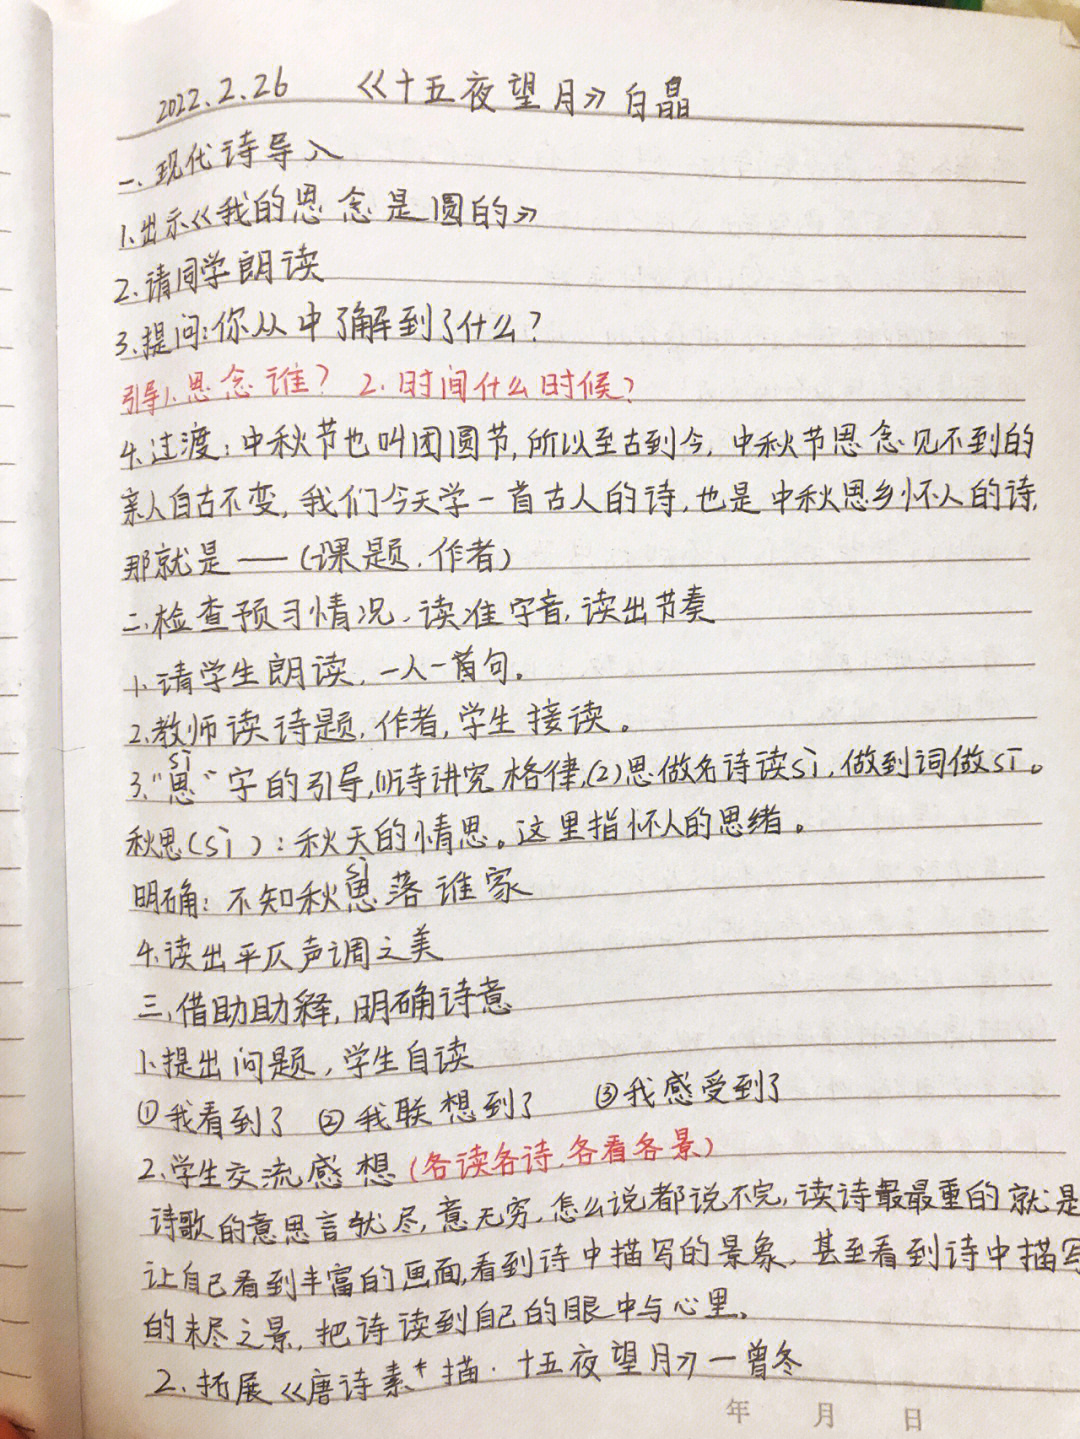 2022.2.26 《十五夜望月》白晶
一、现代诗导入
1、出示《我的思念是圆的》
2、请同学朗读
3、提问:你从中了解到了什么?
引导1、思念谁? 2.时间什么时候?
4、过渡:中秋节也叫团圆节,所以至古到今,中秋节思念见不到的
亲人自古不变,我们今天学一首古人的诗,也是中秋思乡怀人的诗,
那就是——(课题、作者)
二、检查预习情况、读准字音,读出节奏
1、请学生朗读,一人一首句。
2、教师读诗题,作者,学生接读。
sì
3、"思"字的引导,(1)诗讲究格律,(2)思做名诗读sì,做到词做sī。
秋思(sì):秋天的情思。这里指怀人的思绪。
sì
明确:不知秋思落谁家
4、读出平仄声调之美
三、借助助释,明确诗意
1、提出问题,学生自读
①我看到了 ②我联想到了 ③我感受到了
2、学生交流感想(各读各诗,各看各景)
诗歌的意思言就尽,意无穷,怎么说都说不完,读诗最最重的就是
让自己看到丰富的画面,看到诗中描写的景象,甚至看到诗中描写
的未尽之景,把诗读到自己的眼中与心里。
2、拓展《唐诗素描·十五夜望月》一曾冬
年 月 日